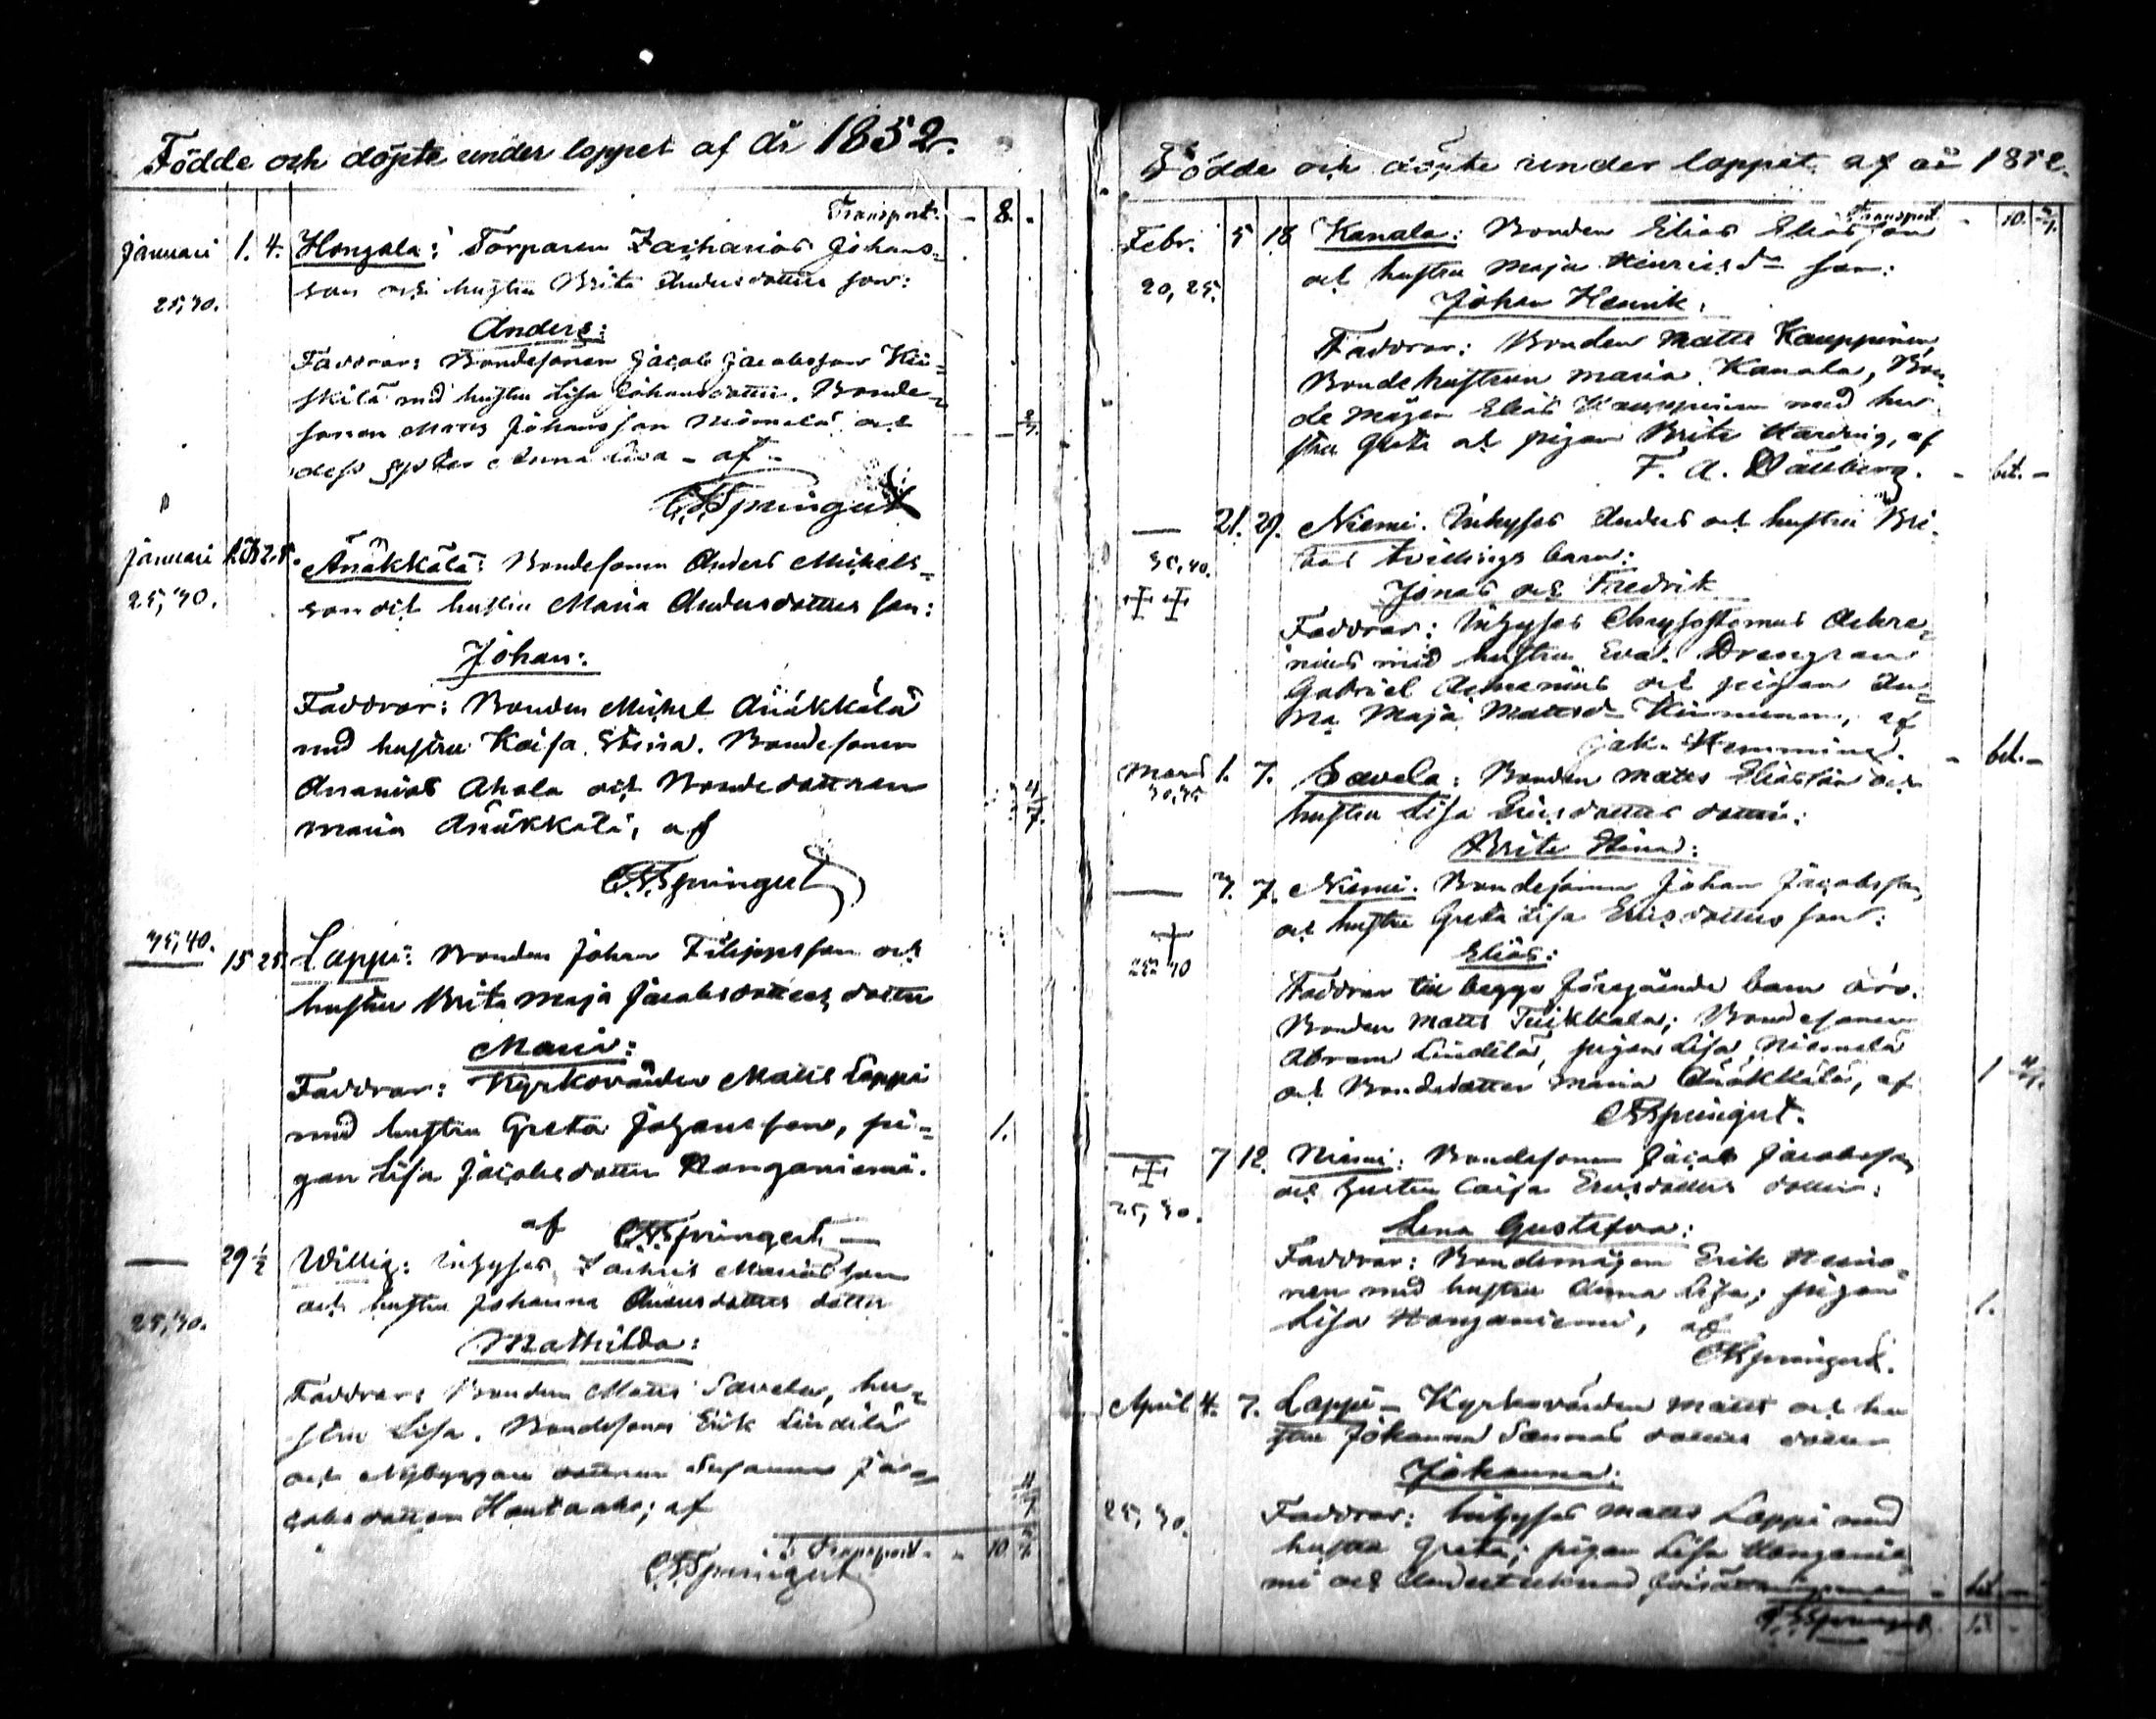 Födde och döpte under loppet af år 1852.
Transport. - 8. -
Januari 1. 4. Hongala: Torparen Zacharias Johans-
25,30. son och hustru Brita Andersdotters son:
Anders:
Faddrar: Bondesonen Jacob Jacobsson Kii-
skilä med hustru Lisa Johansdotter. Bonde-
sonen Matts Johansson Niemelä och
dess syster Anna Lisa - af -
Springert
Januari 25. Änäkkälä: Bondesonen Anders Michels-
25,30. son och hustru Maria Andersdotters son:
Johan:
Faddrar: Bonden Michel Änäkkälä
med hustru Kaisa Stina. Bondesonen
Ananias Ahola och Bondedottren
Maria Änäkkälä, af
Springert
35,40. 15 25. Lappi: Bonden Johan Filippsson och
hustru Brita Maja Jacobsdotters dotter
Maria:
Faddrar: Kyrkovärden Matts Lappi
med hustru Greta Johansson, pi- 1.
gan Lisa Jacobsdotter Kanganiemi.
af Springert
29 1/2 Willig: Inhyses Zachris Mariasson
och hustru Johanna Andersdotters dotter
25,30.
Mathilda:
Faddrar: Bonden Matts Savela, hu-
stru Lisa. Bondesonen Erik Lindilä
och Nybyggare dottren Susanna Ja-
cobsdotter Hautaaho; af
Transport - 10
Springert
Födde och döpte under loppet af år 1852.
Transport - 10.
Febr. 5 18 Kanala: Bonden Elias Eliasson
20,25. och hustru Maja Henricsdr son:
Johan Henrik.
Faddrar: Bonden Matts Kauppinen,
Bondehustrun Maria Kanala, Bon-
de mågen Elias Kauppinen med hu-
stru Greta och pigan Brita, af
F. A. Wällberg. - bet. -
21. 29. Niemi. Inhyses Anders och hustru Bri-
tas tvillings barn:
Jonas och Fredrik
Faddrar: Inhyses Chrysostomus Achre-
nius med hustru Eva. Drengen
Gabriel Achrenius och pigan An-
na Maja Mattsdr Kinnunen, af
Jak. Hemming. - bet. -
Mars 1. 7. Savela: Bonden Matts Eliasson och
30,35 hustru Lisa Ericsdotters dotter:
Brita Stina:
7. 7. Niemi. Bondesonen Johan Jacobsson
och hustru Greta Lisa Ericsdotters son:
Elias:
Faddrar till begge föregående barn äro.
Bonden Matts Tuikkala; Bondesonen
Abram Lindilä, pigan Lisa Niemelä
och Bondedotter Maria Änäkkälä, af
Springert.
7 12. Niemi: Bondesonen Jacob Jacobsson
och hustru Caisa Ericsdotters dotter:
25,30.
Lena Gustafva:
Faddrar: Bondemågen Erik
nen med hustru Anna Lisa; pigan
Lisa Kanganiemi, af 1.
Springert.
April 4. 7. Lappi - Kyrkovärden Matts och hu
stru Johanna dotters dotter
Johanna:
25,30. Faddrar: Inhyses Matts Lappi med
hustru Greta; pigan Lisa Kanganie-
mi och Undertecknad
Springert